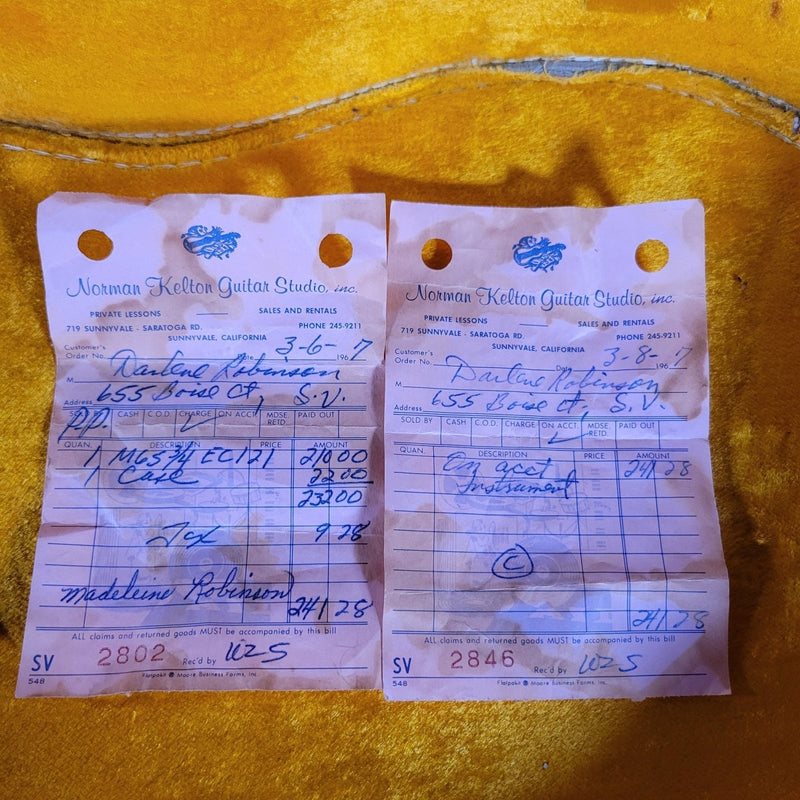 Norman Kelton Guitar Studio, inc.
PRIVATE LESSONS SALES AND RENTALS
719 SUNNYVALE - SARATOGA RD. PHONE 245-9211
SUNNYVALE, CALIFORNIA
Customer's
Order No. Date 3-6- 1967
M Darlene Robinson
Address 655 Boise Ct, S.V.
P.P.
SOLD BY CASH C.O.D. CHARGE ON ACCT. MDSE. RETD. PAID OUT
✓
QUAN. DESCRIPTION PRICE AMOUNT
1 M65 3/4 EC121 210 00
1 Case 22 00
232 00
Tax 9 28
Madeleine Robinson
241 28
ALL claims and returned goods MUST be accompanied by this bill
SV 2802 Rec'd by WZS
548 Flatpakit Moore Business Forms, Inc.
Norman Kelton Guitar Studio, inc.
PRIVATE LESSONS SALES AND RENTALS
719 SUNNYVALE - SARATOGA RD. PHONE 245-9211
SUNNYVALE, CALIFORNIA
Customer's
Order No. Date 3-8- 1967
M Darlene Robinson
Address 655 Boise Ct. S.V.
SOLD BY CASH C.O.D. CHARGE ON ACCT. MDSE. RETD. PAID OUT
✓
QUAN. DESCRIPTION PRICE AMOUNT
On acct 241 28
Instrument
C
241 28
ALL claims and returned goods MUST be accompanied by this bill
SV 2846 Rec'd by WZS
548 Flatpakit Moore Business Forms, Inc.